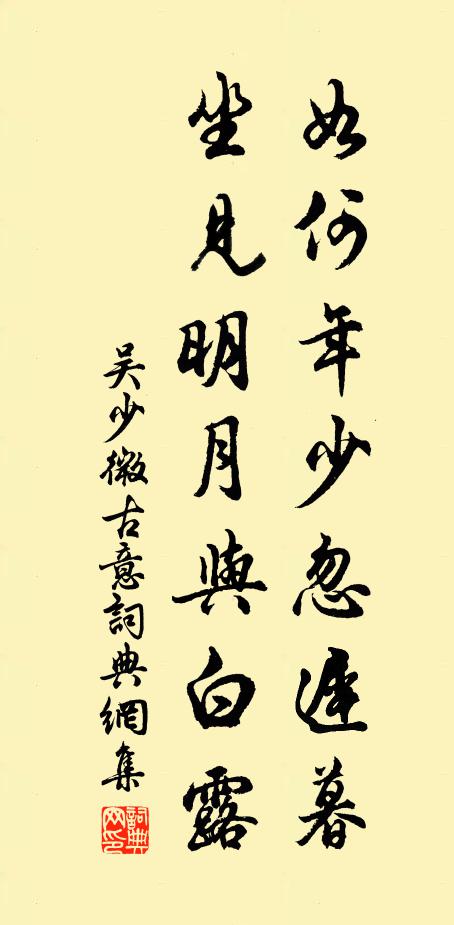 如何年少忽遲暮
坐見明月與白露
吳少微古意詞典網集
詞典網印